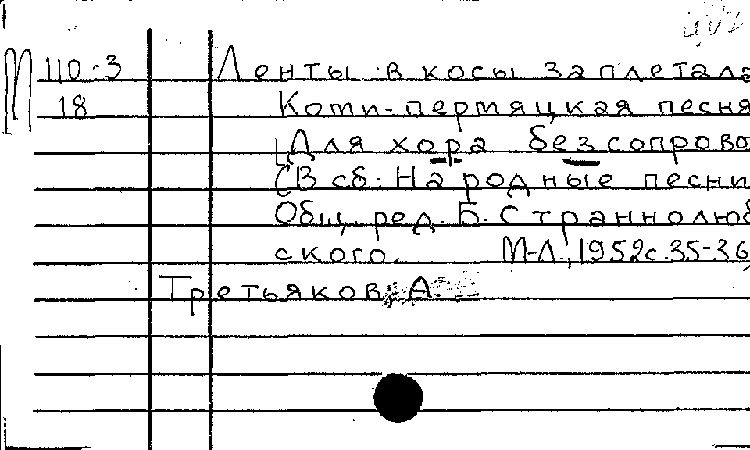 М 110-3 Ленты в косы заплетала
18 Коми-пермяцкая песня
[Для хора без сопрово
(В сб. Народные песни
Общ. ред. Б. Страннолюб
ского. М-Л., 1952 с. 35-36
Третьяков, А.